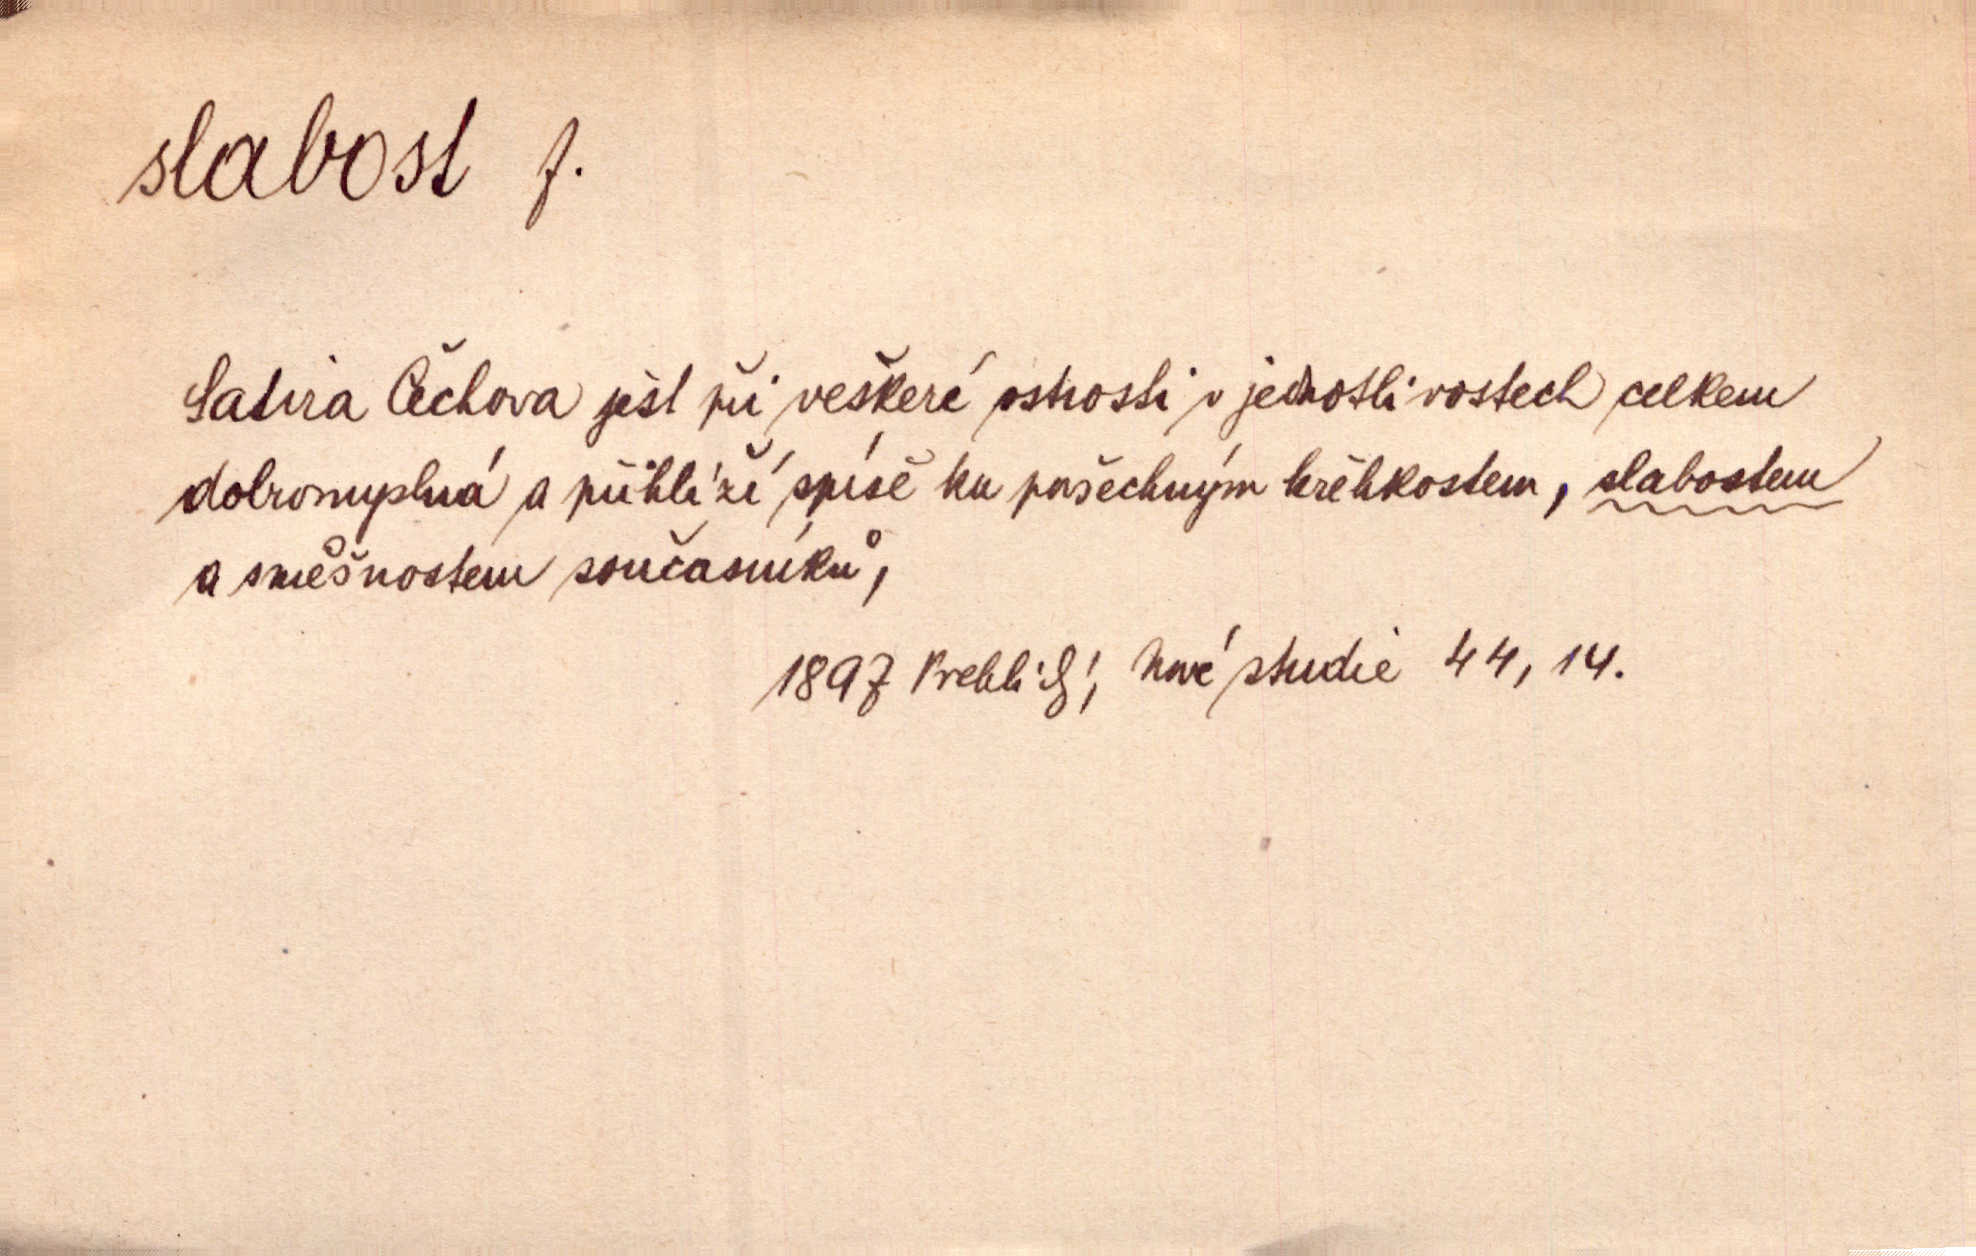 slabost f.
Satira Čechova jest při veškeré ostrosti v jednotlivostech celkem
dobromyslná a přihlíží spíše ku všechným křehkostem, slabostem
a směšnostem současníků,
1897 Vrchlický, Nové studie 44, 14.